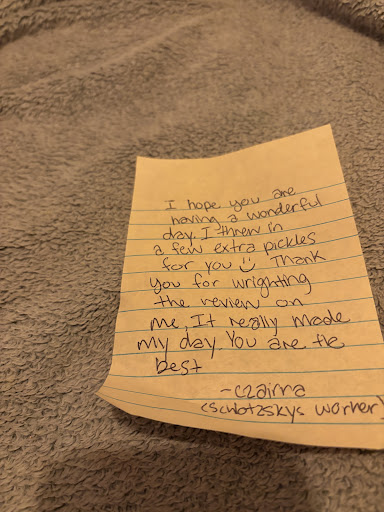 I hope you are
having a wonderful
day. I threw in
a few extra pickles
for you Thank
you for wrighting
the review on
me. It really made
my day You are the
best
-czairra
(schlotzskys worker)